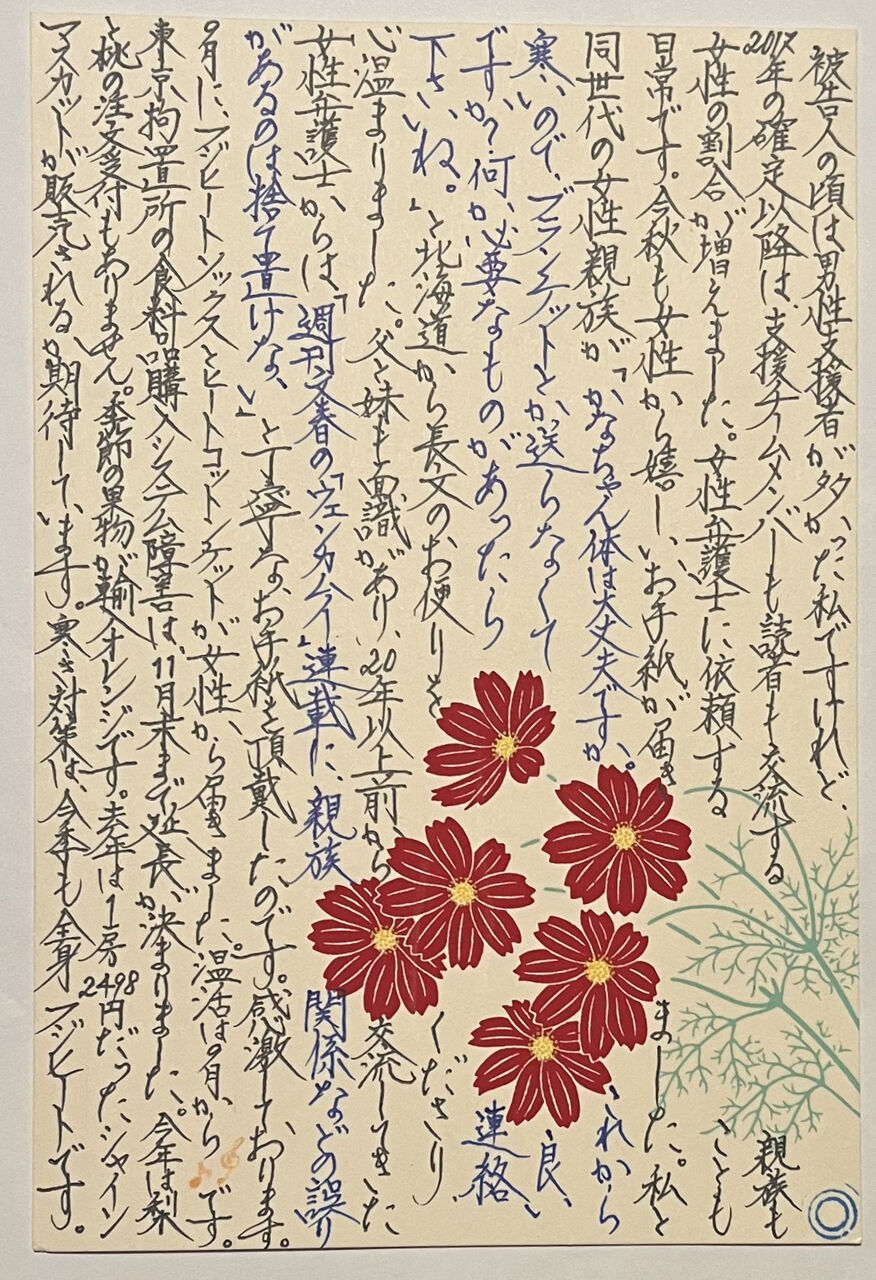 被告人の頃は男性支援者が多かった私ですけれど、
2017年の確定以降は、支援チームメンバーも読者も交流する親族も
女性の割合が増えました。女性弁護士に依頼することも
日常です。今秋も女性から嬉しいお手紙が届きました。私と
同世代の女性親族が「かなちゃん体は大丈夫ですか。これから
寒いので、ブランケットとか送らなくて良い
ですか？何か必要なものがあったら連絡
下さいね。」と北海道から長文のお便りをくださり、
心温まりました。父と妹も面識があり、20年以上前から交流してきた
女性弁護士からは、「週刊文春の「ウェンカムイ」連載に、親族関係などの誤り
があるのは捨て置けない」と丁寧な、お手紙を頂戴したのです。感激しております。
9月に、フジヒートソックスとヒートコットンケットが女性から届きました。温活は9月からです。
東京拘置所の食料品購入システム障害は、11月末まで延長が決まりました。今年は梨
と桃の注文受付もありません。季節の果物が輸入オレンジです。去年は1房2498円だったシャイン
マスカットが販売されるか期待しています。寒さ対策は、今季も全身フジヒートです。